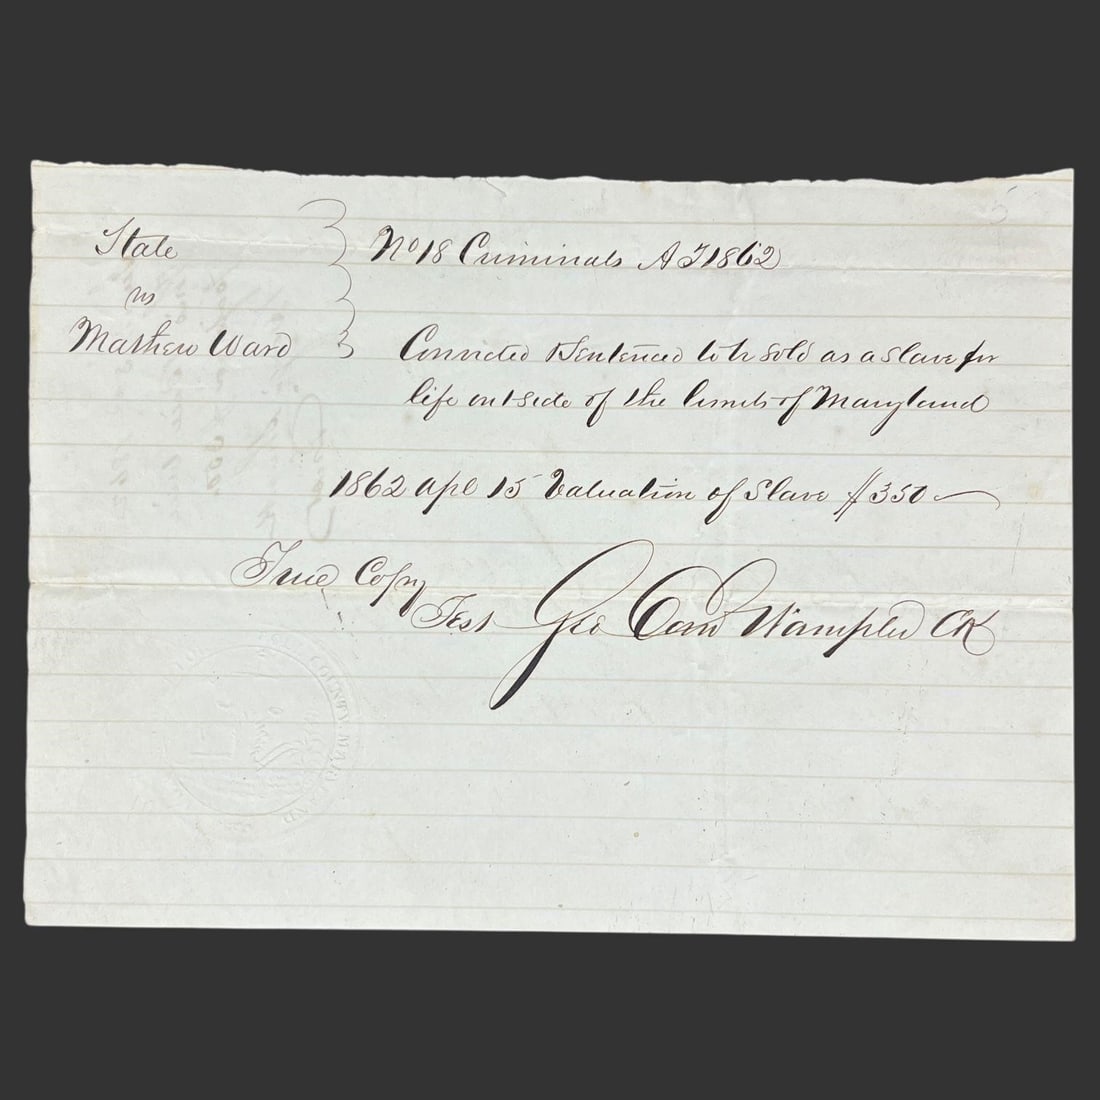 State
vs
Mathew Ward
No 18 Criminals A T 1862
Convicted & Sentenced to be sold as a slave for
life outside of the limits of Maryland
1862 Apl 15 Valuation of Slave $350
True Copy
Test Geo Wampler Clk
COUNTY MARYLAND